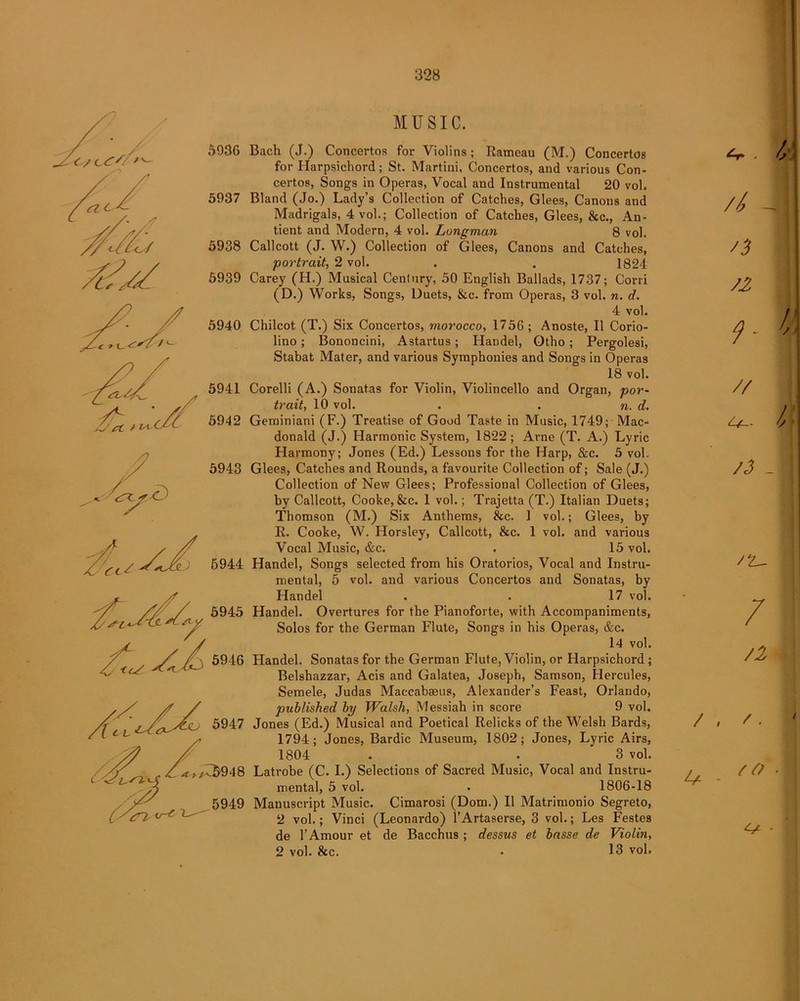 328
MUSIC.
5936 Bach (J.) Concertos for Violins; Rameau (M.) Concertos
for Harpsichord; St. Martini, Concertos, and various Con-
certos, Songs in Operas, Vocal and Instrumental 20 vol.
5937 Bland (Jo.) Lady's Collection of Catches, Glees, Canons and
Madrigals, 4 vol.; Collection of Catches, Glees, &c., An-
tient and Modern, 4 vol. Longman 8 vol.
5938 Callcott (J. W.) Collection of Glees, Canons and Catches,
portrait, 2 vol. . . 1824
5939 Carey (H.) Musical Century, 50 English Ballads, 1737; Corri
(D.) Works, Songs, Duets, &c. from Operas, 3 vol. n. d.
4 vol.
5940 Chilcot (T.) Six Concertos, morocco, 1756; Anoste, Il Corio-
lino; Bononcini, Astartus; Handel, Otho; Pergolesi,
Stabat Mater, and various Symphonies and Songs in Operas
18 vol.
5941 Corelli (A.) Sonatas for Violin, Violincello and Organ, por-
trait, 10 vol. . . n. d.
5942 Geminiani (F.) Treatise of Good Taste in Music, 1749; Mac-
donald (J.) Harmonic System, 1822; Arne (T. A.) Lyric
Harmony; Jones (Ed.) Lessons for the Harp, &c. 5 vol.
5943 Glees, Catches and Rounds, a favourite Collection of; Sale (J.)
Collection of New Glees; Professional Collection of Glees,
by Callcott, Cooke, &c. 1 vol.; Trajetta (T.) Italian Duets;
Thomson (M.) Six Anthems, &c. 1 vol.; Glees, by
R. Cooke, W. Horsley, Callcott, &c. 1 vol. and various
Vocal Music, &c. . 15 vol.
5944 Handel, Songs selected from his Oratorios, Vocal and Instru-
mental, 5 vol. and various Concertos and Sonatas, by
Handel . . 17 vol.
5945 Handel. Overtures for the Pianoforte, with Accompaniments,
Solos for the German Flute, Songs in his Operas, &c.
14 vol.
5946 Handel. Sonatas for the German Flute, Violin, or Harpsichord;
Belshazzar, Acis and Galatea, Joseph, Samson, Hercules,
Semele, Judas Maccabæus, Alexander's Feast, Orlando,
published by Walsh, Messiah in score 9 vol.
5947 Jones (Ed.) Musical and Poetical Relicks of the Welsh Bards,
1794; Jones, Bardic Museum, 1802; Jones, Lyric Airs,
1804 . . 3 vol.
5948 Latrobe (C. I.) Selections of Sacred Music, Vocal and Instru-
mental, 5 vol. . 1806-18
5949 Manuscript Music. Cimarosi (Dom.) Il Matrimonio Segreto,
2 vol.; Vinci (Leonardo) l'Artaserse, 3 vol.; Les Festes
de l'Amour et de Bacchus; dessus et basse de Violin,
2 vol. &c. . 13 vol.